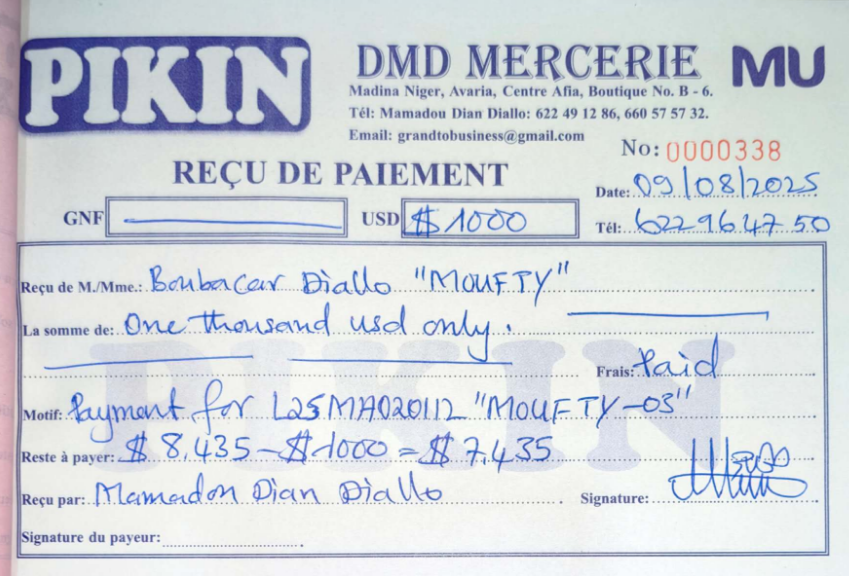 PIKIN
DMD MERCERIE
MU
Madina Niger, Avaria, Centre Afia, Boutique No. B - 6.
Tél: Mamadou Dian Diallo: 622 49 12 86, 660 57 57 32.
Email: grandtobusiness@gmail.com
No: 0000338
REÇU DE PAIEMENT
Date: 09/08/2025
GNF USD $ 1000
Tél: 622 96 47 50
Reçu de M./Mme.: Boubacar Diallo "MOUFTY"
La somme de: One thousand usd only.
Frais: Paid
Motif: Payment for L25MA020112 "MOUFTY-03"
Reste à payer: $ 8,435 - $1000 = $ 7,435
Reçu par: Mamadou Dian Diallo Signature:
Signature du payeur:
PIKIN